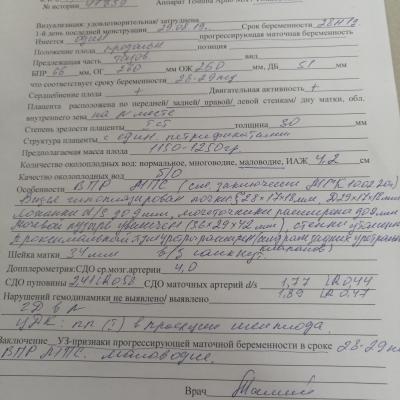 № истории 47830 Аппарат Toshiba
Визуализация: удовлетворительная/ затруднена
1-й день последней менструации 29.08.19. Срок беременности 28н1д
Имеется один прогрессирующая маточная беременность
Положение плода продольн позиция
Предлежащая часть вид
БПР 66 мм, ОГ 260 мм ОЖ 260 мм, ДБ 51 мм
что соответствует сроку беременности 28-29нед
Сердцебиение плода + Двигательная активность +
Плацента расположена по передней/ задней/ правой/ левой стенкам/ дну матки, обл.
внутреннего зева на м месте
Степень зрелости плаценты толщина 30 мм
Структура плаценты с един. петрификатами
Предполагаемая масса плода 1150-1250гр.
Количество околоплодных вод: нормальное, многоводие, маловодие, ИАЖ 4,2 см
Качество околоплодных вод б/о
Особенности ВПР МПС (см. заключение МГК
почки 28×17×18мм, 29×17×18мм
Лоханки d/s до 9мм, мочеточники расширены до 9мм
Мочевой пузырь увеличен (36×29×42мм), стенки утолщены
Шейка матки 34мм в/з сомкнут
Допплерометрия: СДО ср.мозг.артерии 4,0
СДО пуповины СДО маточных артерий d/s 1,77 IR 0.44
Нарушений гемодинамики не выявлено/ выявлено 1,89 IR 0.47
ЦДК: в проекции шеи плода.
Заключение УЗ-признаки прогрессирующей маточной беременности в сроке 28-29н
ВПР МПС. Маловодие.
Врач